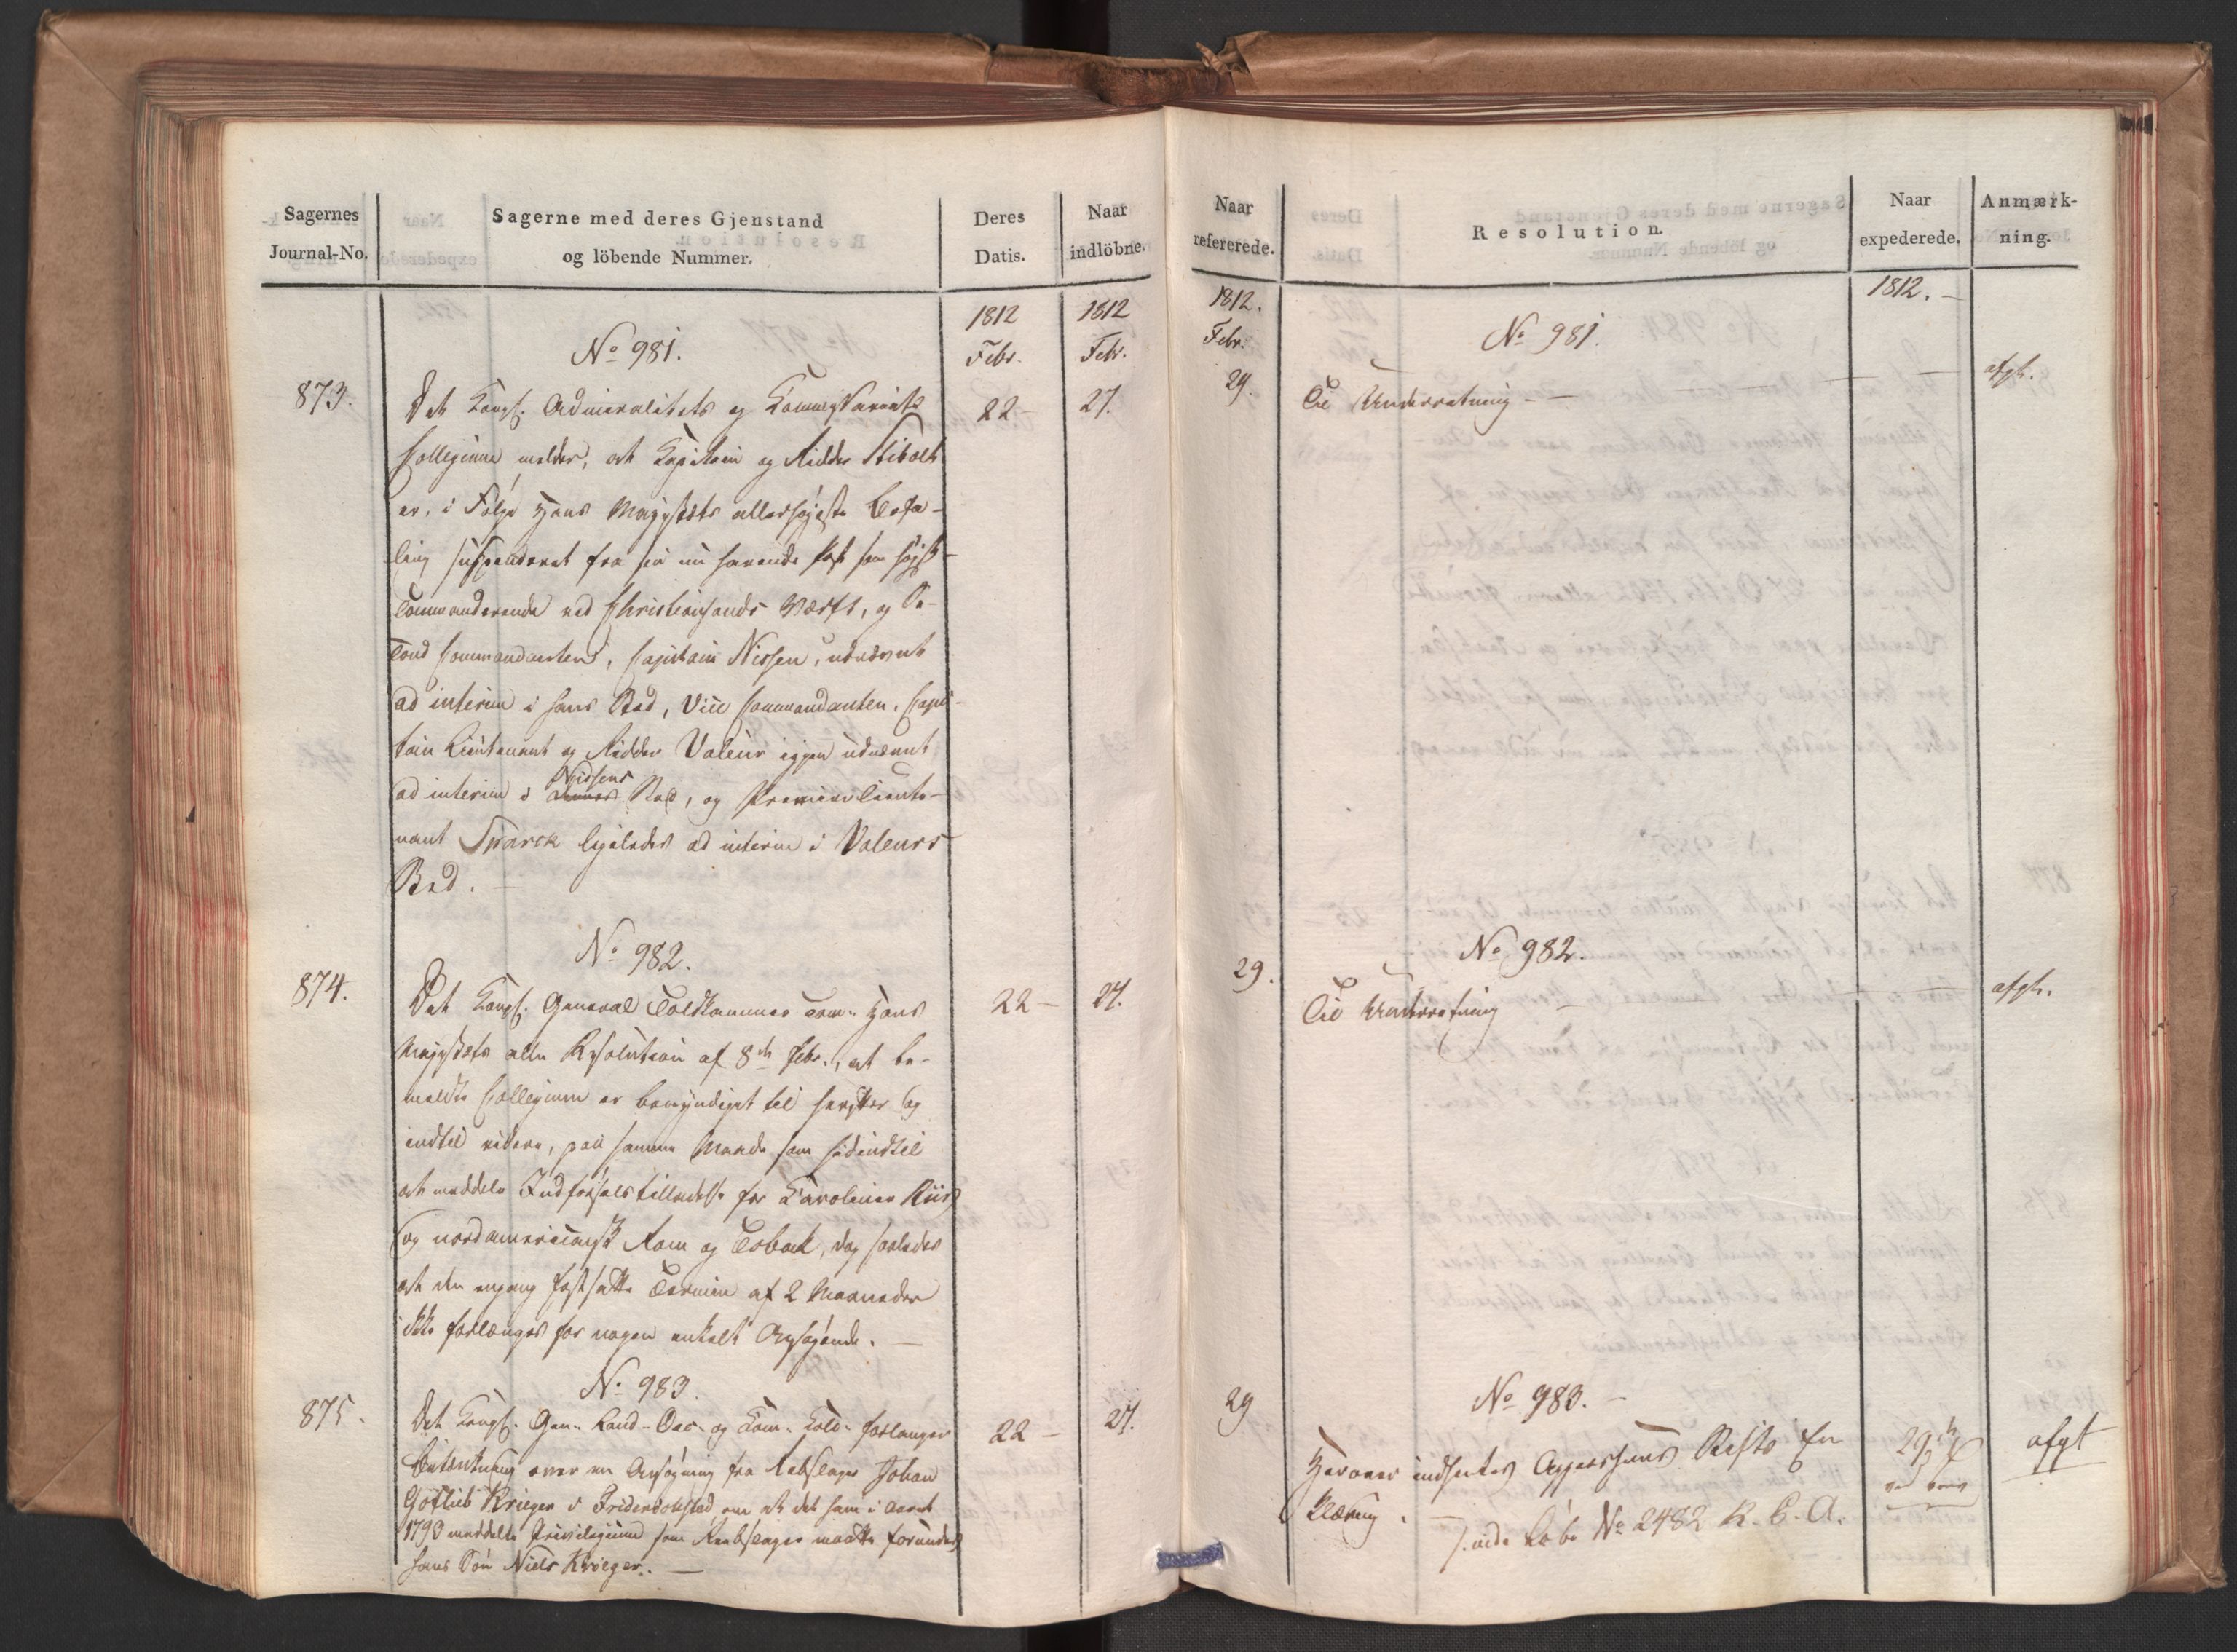 Sagernes
Journal-No.
Sagerne med deres Gjenstand
og löbende Nummer.
Deres
Datis.
Naar
indlöbne.
1812
Febr.
1812
Febr.
No 981.
873.
Det Kongl. Admiralitets og Commissariats
22-
27.
Collegium melder, at Capitain og Ridder Stibolt
er, i Følge Hans Majestæts allerhøjeste Befa-
ling suspenderet fra sin nu havende Post som højst-
Commanderende ved Christiansands Værft, og Se-
cond Commandanten, Capitain Nissen, udnævnt
ad interim i hans Sted, Vice Commandanten, Capi-
tain Lieutenant og Ridder Valeur igjen udnævnt
Nissens
ad interim i Sted, og Premier Lieute-
nant Swarck ligeledes ad interim i Valeurs
Sted.
No 982.
874.
Det Kongl. General Toldkammer com: Hans
22-
27.
Majestæts allern Resolution af 8de Febr., at be-
meldte Collegium er bemyndiget til herefter og
indtil videre, paa samme Maade som hidindtil
at meddele Indførsels tilladelse for Caroliner Riis
og nordamericansk Rom og Toback, dog saaledes
at den engang fastsatte Termin af 2 Maaneder
ikke forlænges for nogen enkelt Ansøgende.
No 983.
875.
Det Kongl. Gen: Land-Oec: og Com: Coll: forlanger
22-
27.
Betænkning over en Ansøgning fra Rebslager Johan
Gotlieb Krieger i Friderichstad om at det ham i Aaret
1793 meddelte Privilegium som Reebslager maatte forundes
hans Søn Niels Krieger.
Naar
refererede.
Resolution.
Naar
expederede.
Anmærk-
ning.
1812.
Febr.
1812.
No 981.
29.
Til Underretning
afgl.
No 982.
29.
Til Underretning
afgl.
No 983.
29
Herover indhentes Aagaards Er-
29de
afgt
klæring.
vide Løbe No 2482 R. C. A.